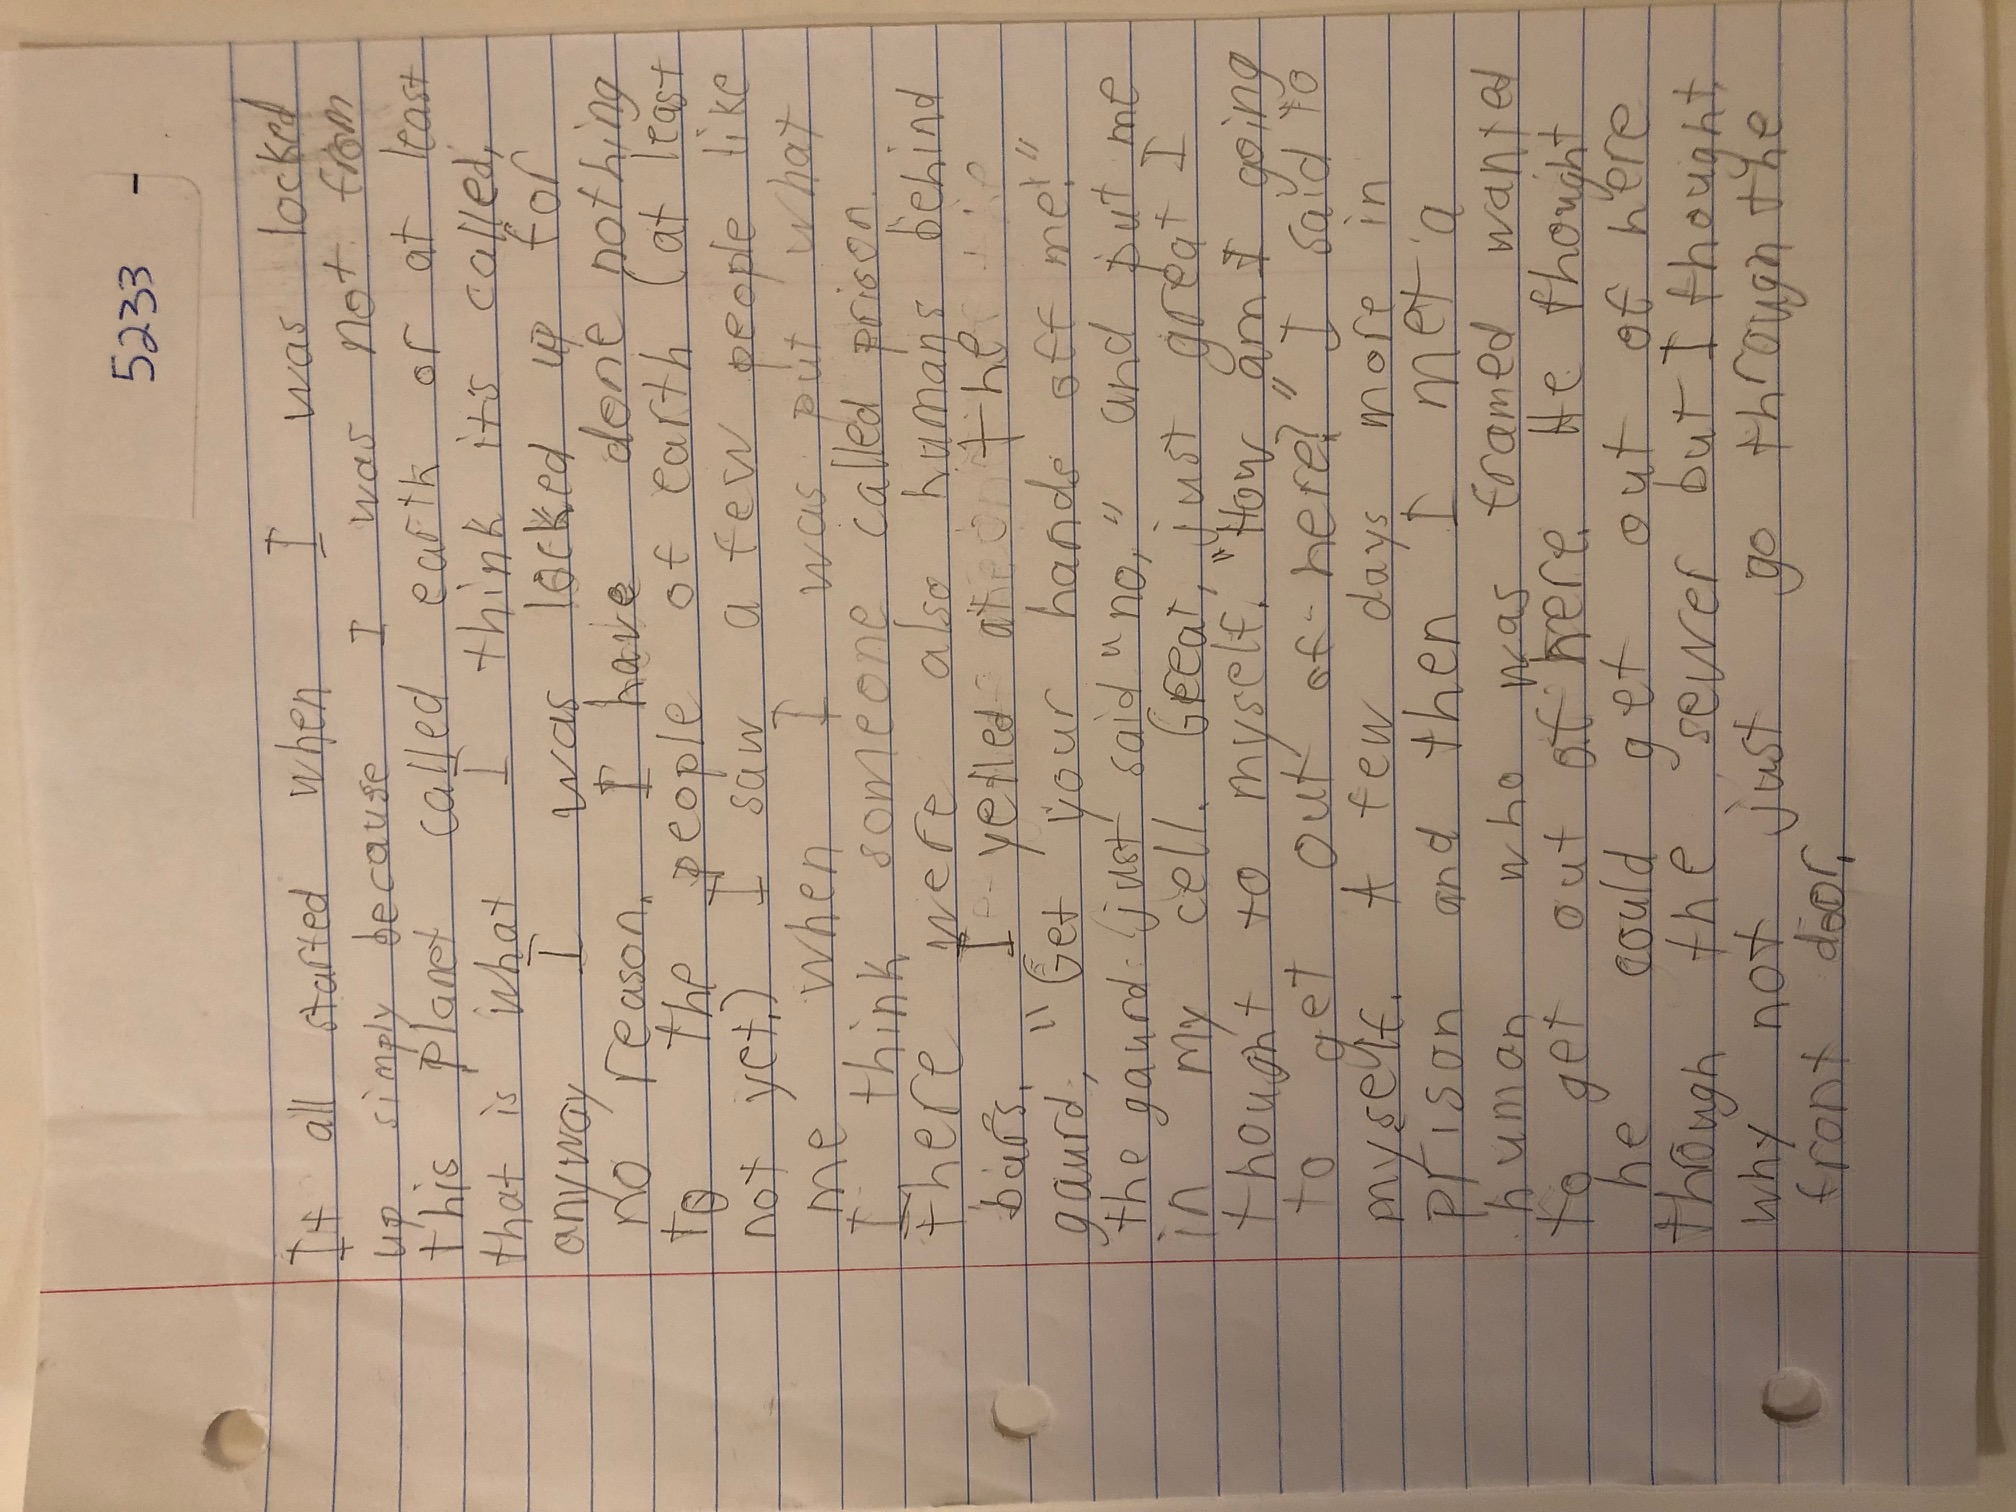 5233 -
It all started when I was locked
up simply because I was not from
this planet called earth or at least
that is what I think it's called,
anyway I was locked up for
no reason. I have done nothing
to the people of earth (at least
not yet.) I saw a few people like
me when I was put what
I think someone called prison.
there were also humans behind
bars. I yelled at the
gaurd, "Get your hands off me!"
the gaurd just said "no," and put me
in my cell. Great, just great I
thought to myself. "How am I going
to get out of here?" I said to
myself. A few days more in
prison and then I met a
human who was framed wanted
to get out of here. He thought
he could get out of here
through the sewer but I thought,
why not just go through the
front door.